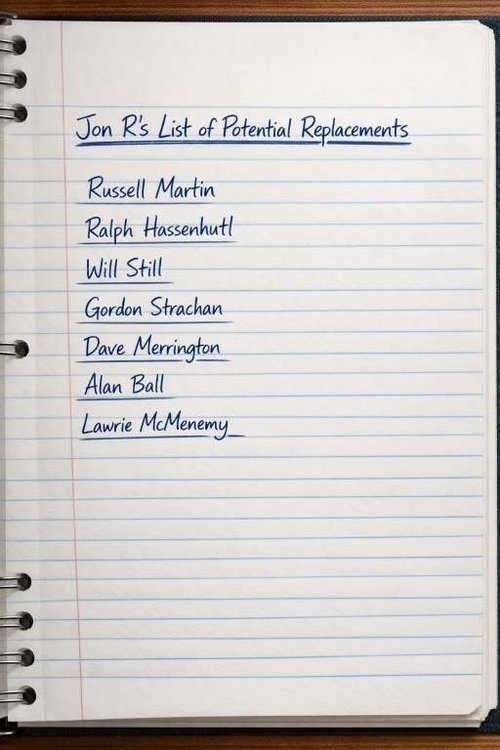 Jon R's List of Potential Replacements
Russell Martin
Ralph Hassenhutl
Will Still
Gordon Strachan
Dave Merrington
Alan Ball
Lawrie McMenemy